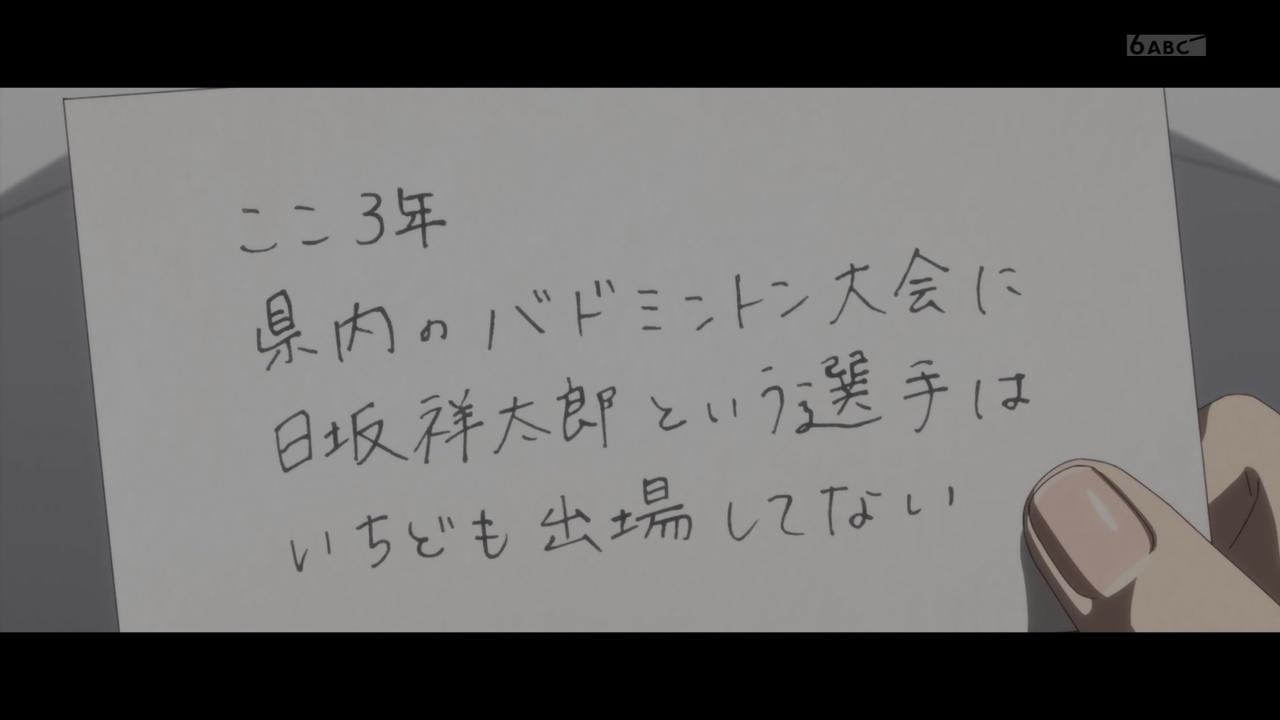 6ABC
ここ3年
県内のバドミントン大会に
日坂祥太郎という選手は
いちども出場してない